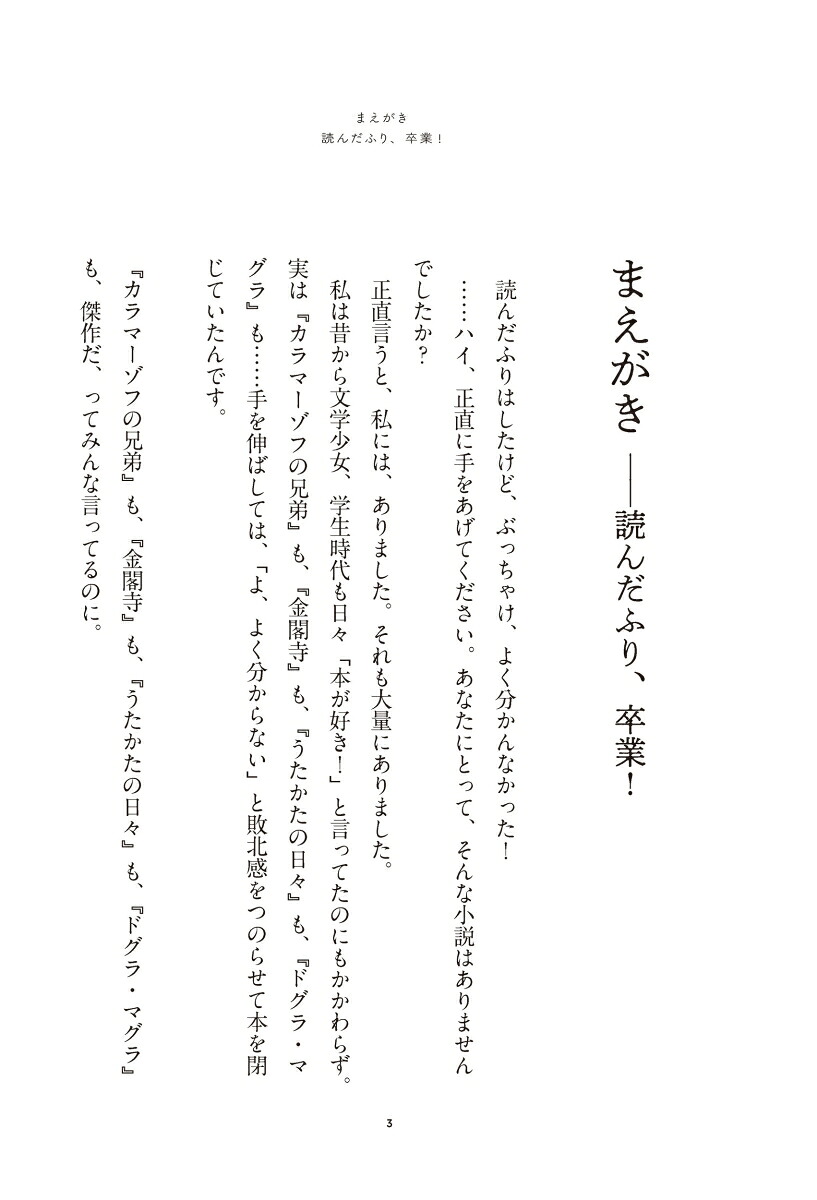 まえがき
読んだふり、卒業！
まえがき――読んだふり、卒業！
読んだふりはしたけど、ぶっちゃけ、よく分かんなかった！
……ハイ、正直に手をあげてください。あなたにとって、そんな小説はありません
でしたか？
正直言うと、私には、ありました。それも大量にありました。
私は昔から文学少女、学生時代も日々「本が好き！」と言ってたのにもかかわらず。
実は『カラマーゾフの兄弟』も、『金閣寺』も、『うたかたの日々』も、『ドグラ・マ
グラ』も……手を伸ばしては、「よ、よく分からない」と敗北感をつのらせて本を閉
じていたんです。
『カラマーゾフの兄弟』も、『金閣寺』も、『うたかたの日々』も、『ドグラ・マグラ』
も、傑作だ、ってみんな言ってるのに。
3